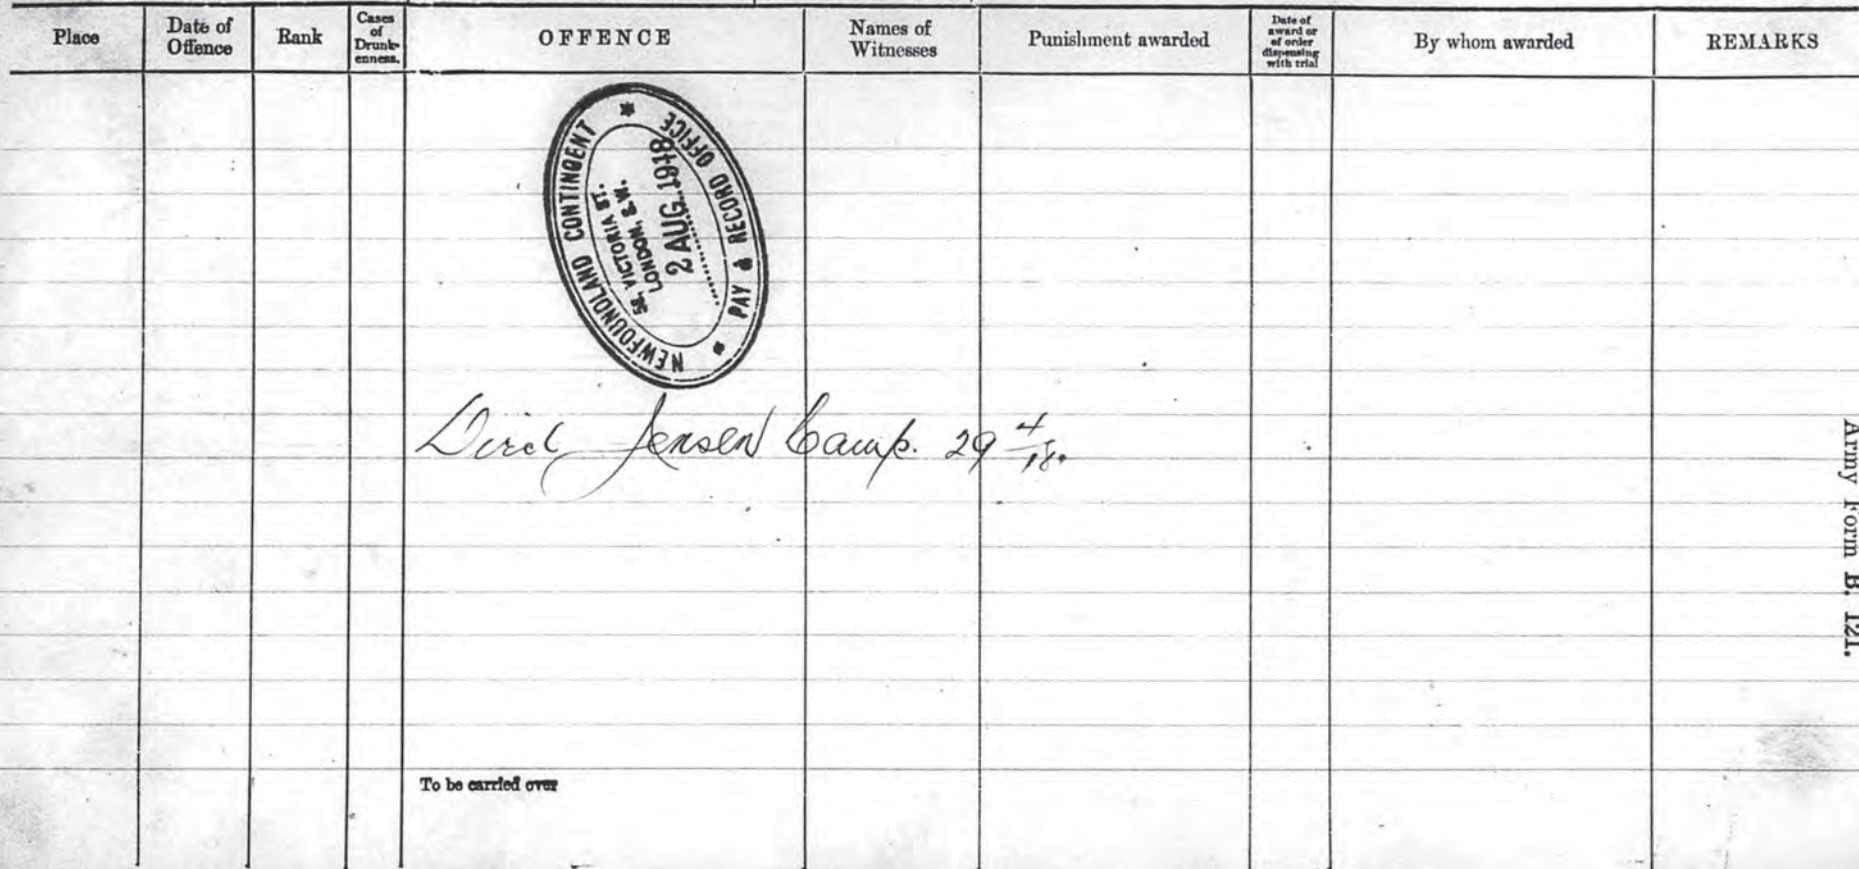 Place
Date of Offence
Rank
Cases of Drunk-enness.
OFFENCE
Names of Witnesses
Punishment awarded
Date of award or of order dispensing with trial
By whom awarded
REMARKS
NEWFOUNDLAND CONTINGENT
PAY & RECORD OFFICE
58, VICTORIA ST.
LONDON, S.W.
2 AUG. 1918
Died Jensen Camp. 29 4/18.
To be carried over
Army Form B. 121.